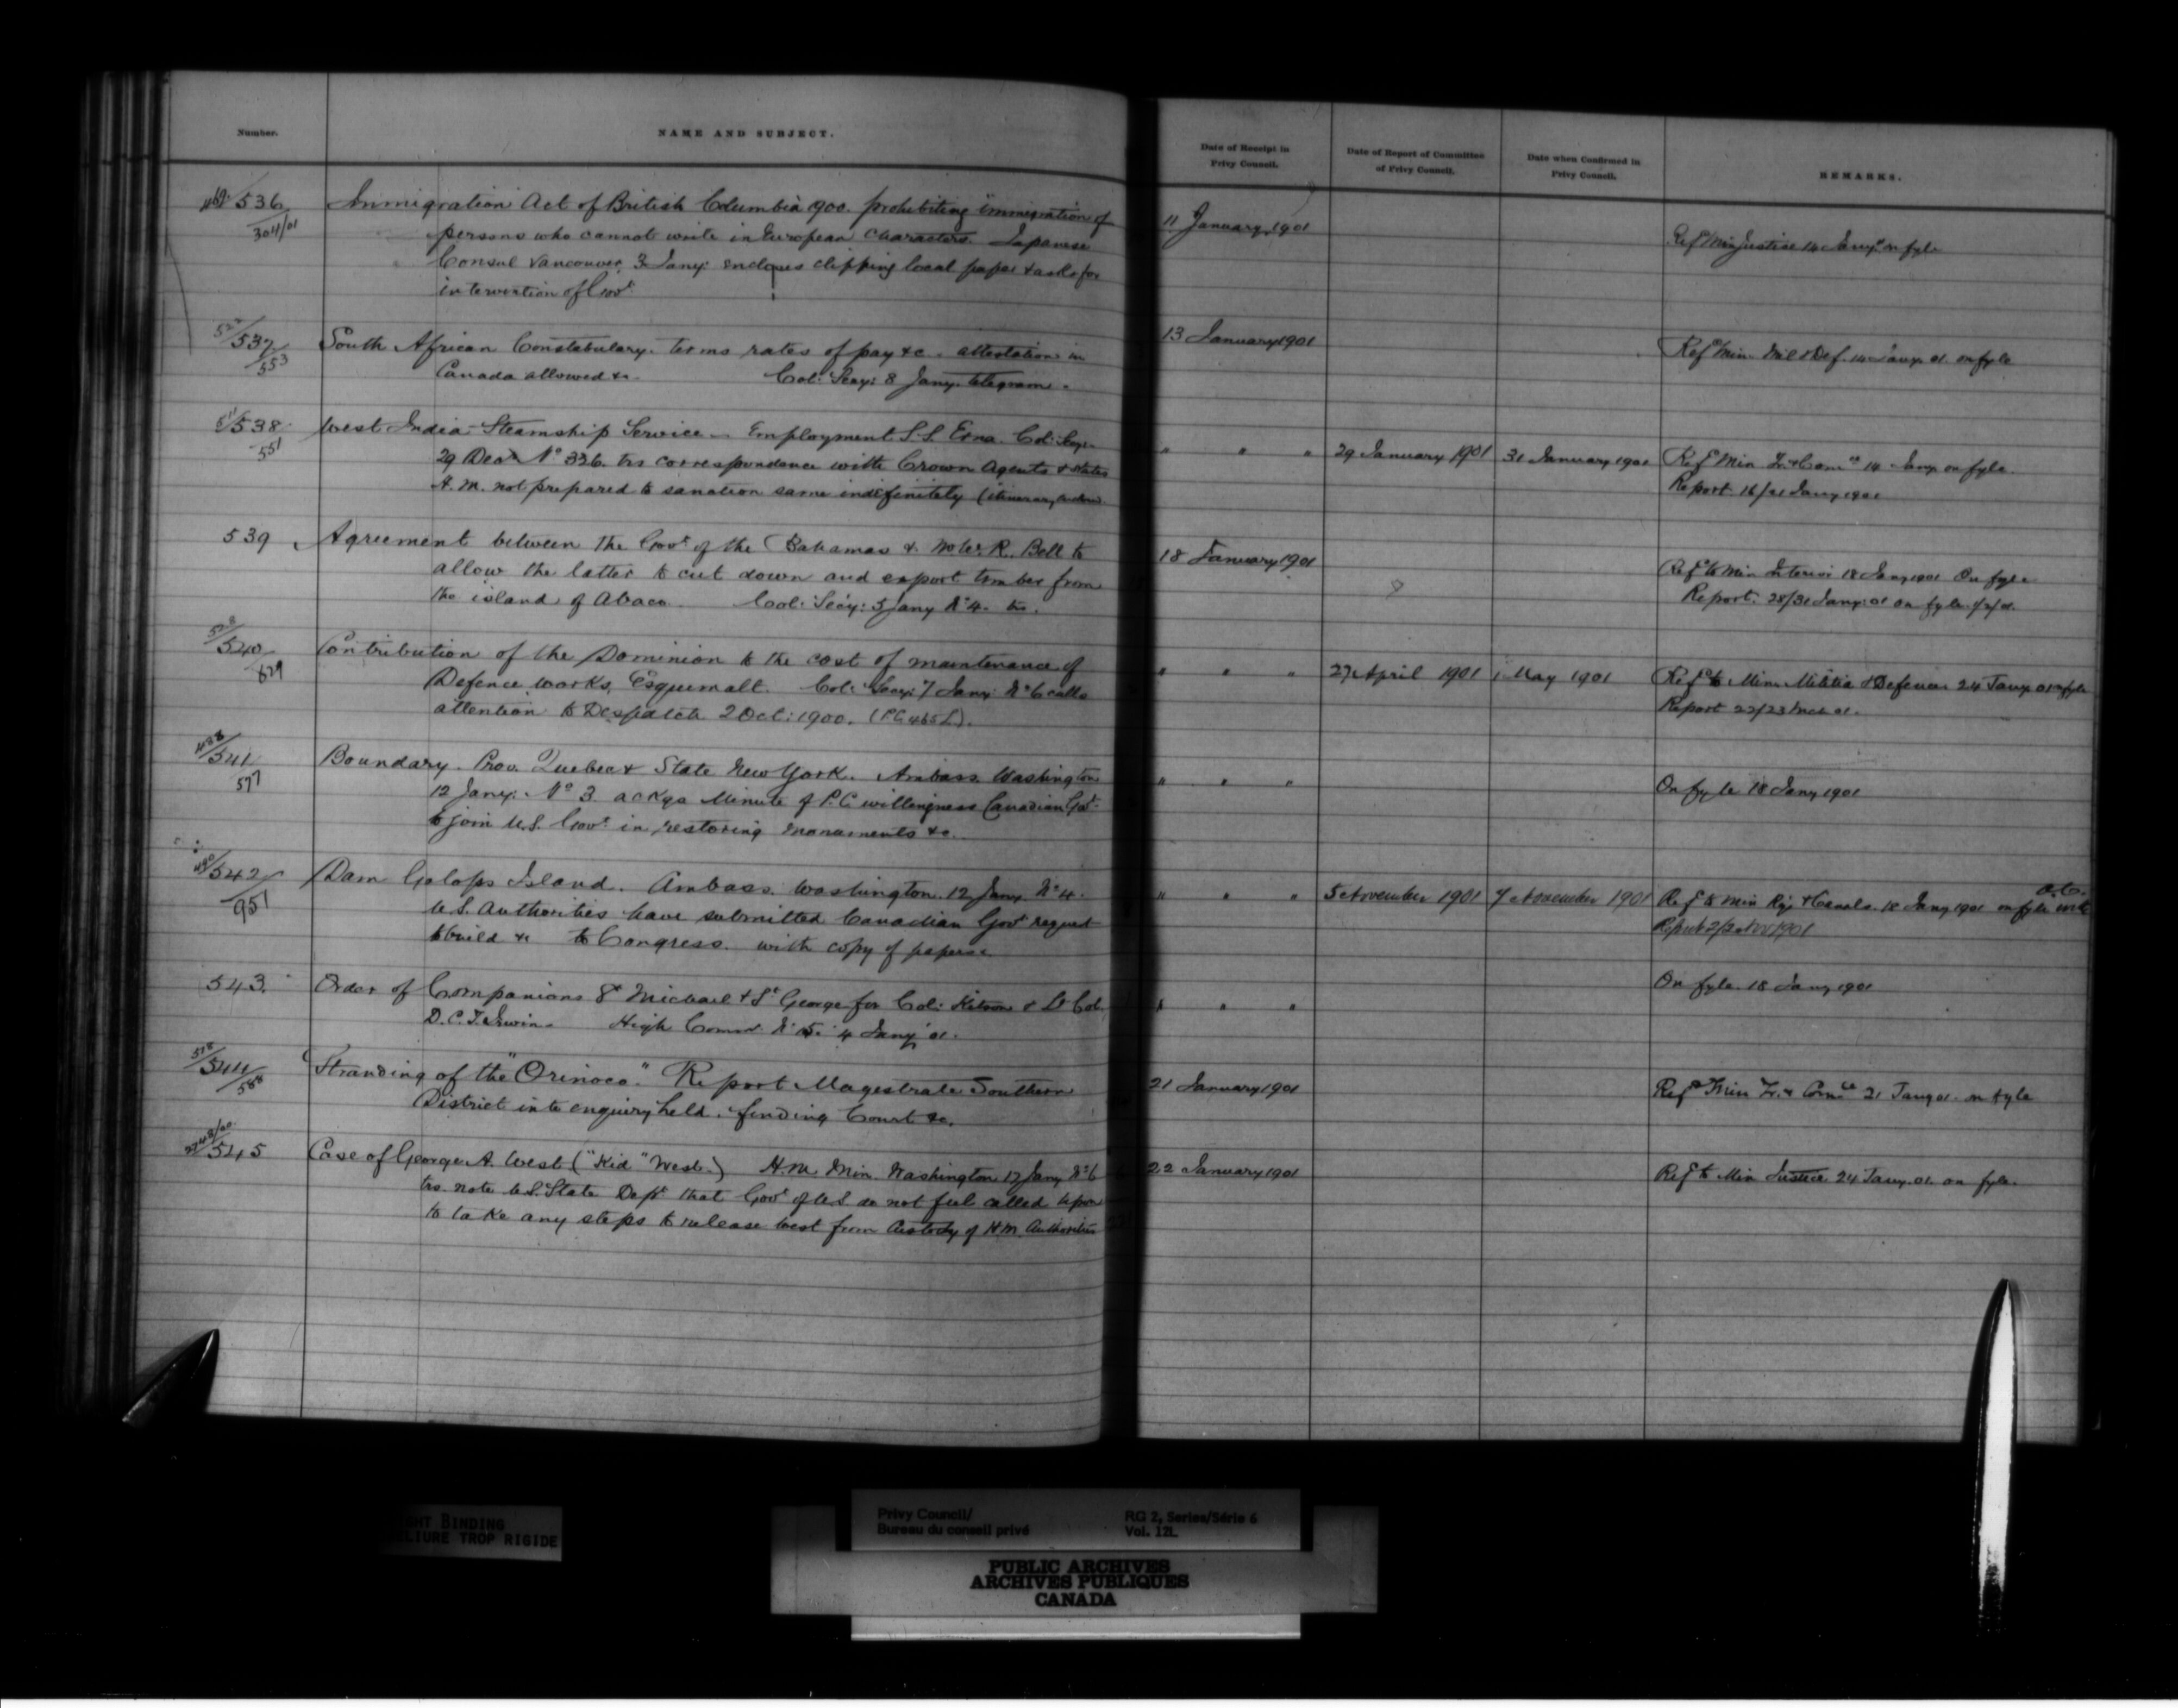 Number.
NAME AND SUBJECT.
Date of Receipt in Privy Council.
Date of Report of Committee of Privy Council.
Date when Confirmed in Privy Council.
REMARKS.
536
304/01
Immigration Act of British Columbia 1900. prohibiting immigration of
persons who cannot write in European characters. Japanese
Consul Vancouver 3 Jany: encloses clipping local paper & asks for
intervention of Govt.
11 January 1901
Refd Min Justice 14 Jany on fyle
522/537/553
South African Constabulary. terms rates of pay &c. attestation in
Canada allowed &c. Col: Secy: 8 Jany. telegram.
13 January 1901
Refd Min. Mil & Def. 14 Jany. 01. on fyle
538
551
West India Steamship Service - Employment S.S. Erna. Col: Secy.
29 Decr No 326. trs correspondence with Crown Agents & states
A.M. not prepared to sanction same indefinitely (itinerary
" " "
29 January 1901
31 January 1901
Refd Min Tr. & Comce 14 Jany on fyle.
Report 16/21 Jany 1901
539
Agreement between the Govt of the Bahamas & R. Bell to
allow the latter to cut down and export timber from
the island of Abaco. Col: Secy: 5 Jany No 4. trs.
18 January 1901
Refd to Min Interior 18 Jany 1901 On fyle
Report. 28/31 Jany: 01 on fyle
528/540/629
Contribution of the Dominion to the cost of maintenance of
Defence works, Esquimalt. Col: Secy: 7 Jany: No 6 calls
attention to Despatch 2 Oct: 1900. (P.C. 465 L).
" " "
27 April 1901
1 May 1901
Refd to Min. Militia & Defence 24 Jany 01 on fyle
Report 22/23 Mch 01.
488/541/577
Boundary. Prov. Quebec & State New York. Ambass. Washington
12 Jany: No 3 ackgs Minute of P.C. willingness Canadian Govt.
to join U.S. Govt in restoring monuments &c.
" " "
On fyle 18 Jany 1901
490/542/957
Dam Galops Island. Ambass. Washington. 12 Jany No 4.
U.S. Authorities have submitted Canadian Govt request
to build &c to Congress. with copy of papers.
" " "
5 November 1901
7 November 1901
Refd to Min Rys & Canals. 18 Jany 1901 on fyle with O.C.
Report 2/2 Nov 1901
543.
Order of Companions St Michael & St George for Col: Kitson & Lt Col.
D.C.F. Irwin. High Comr. No 5. 4 Jany 01.
" " "
On fyle. 18 Jany 1901
518/544/588
Stranding of the "Orinoco." Report Magestrate Southern
District into enquiry held. finding Court &c.
21 January 1901
Refd Min Tr. & Comce 21 Jany 01. on fyle
2248/00/545
Case of George A. West ("Kid" West.) H.M. Min. Washington 17 Jany No 6
trs. note U.S. State Dept that Govt of U.S. do not feel called upon
to take any steps to release West from custody of H.M. Authorities
22 January 1901
Refd to Min Justice 24 Jany. 01. on fyle.
GHT BINDING
ELIURE TROP RIGIDE
Privy Council/
Bureau du conseil privé
RG 2, Series/Série 6
Vol. 12L
PUBLIC ARCHIVES
ARCHIVES PUBLIQUES
CANADA